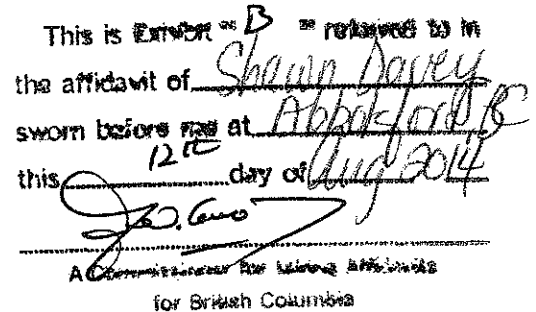 This is Exhibit " B " referred to in
the affidavit of Shawn Davey
sworn before me at Abbotsford BC
this 12th day of Aug 2014
A Commissioner for taking Affidavits
for British Columbia